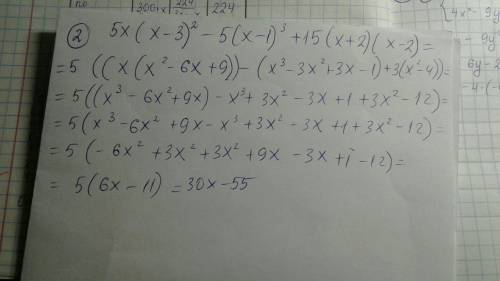 по 300tx 224 224
4x² - 9y
- 9y
6y - 2
= 4·(-
② 5x(x-3)² - 5(x-1)³ + 15(x+2)(x-2) =
= 5((x(x² - 6x + 9)) - (x³ - 3x² + 3x - 1) + 3(x² - 4)) =
= 5((x³ - 6x² + 9x) - x³ + 3x² - 3x + 1 + 3x² - 12) =
= 5(x³ - 6x² + 9x - x³ + 3x² - 3x + 1 + 3x² - 12) =
= 5(-6x² + 3x² + 3x² + 9x - 3x + 1 - 12) =
= 5(6x - 11) = 30x - 55